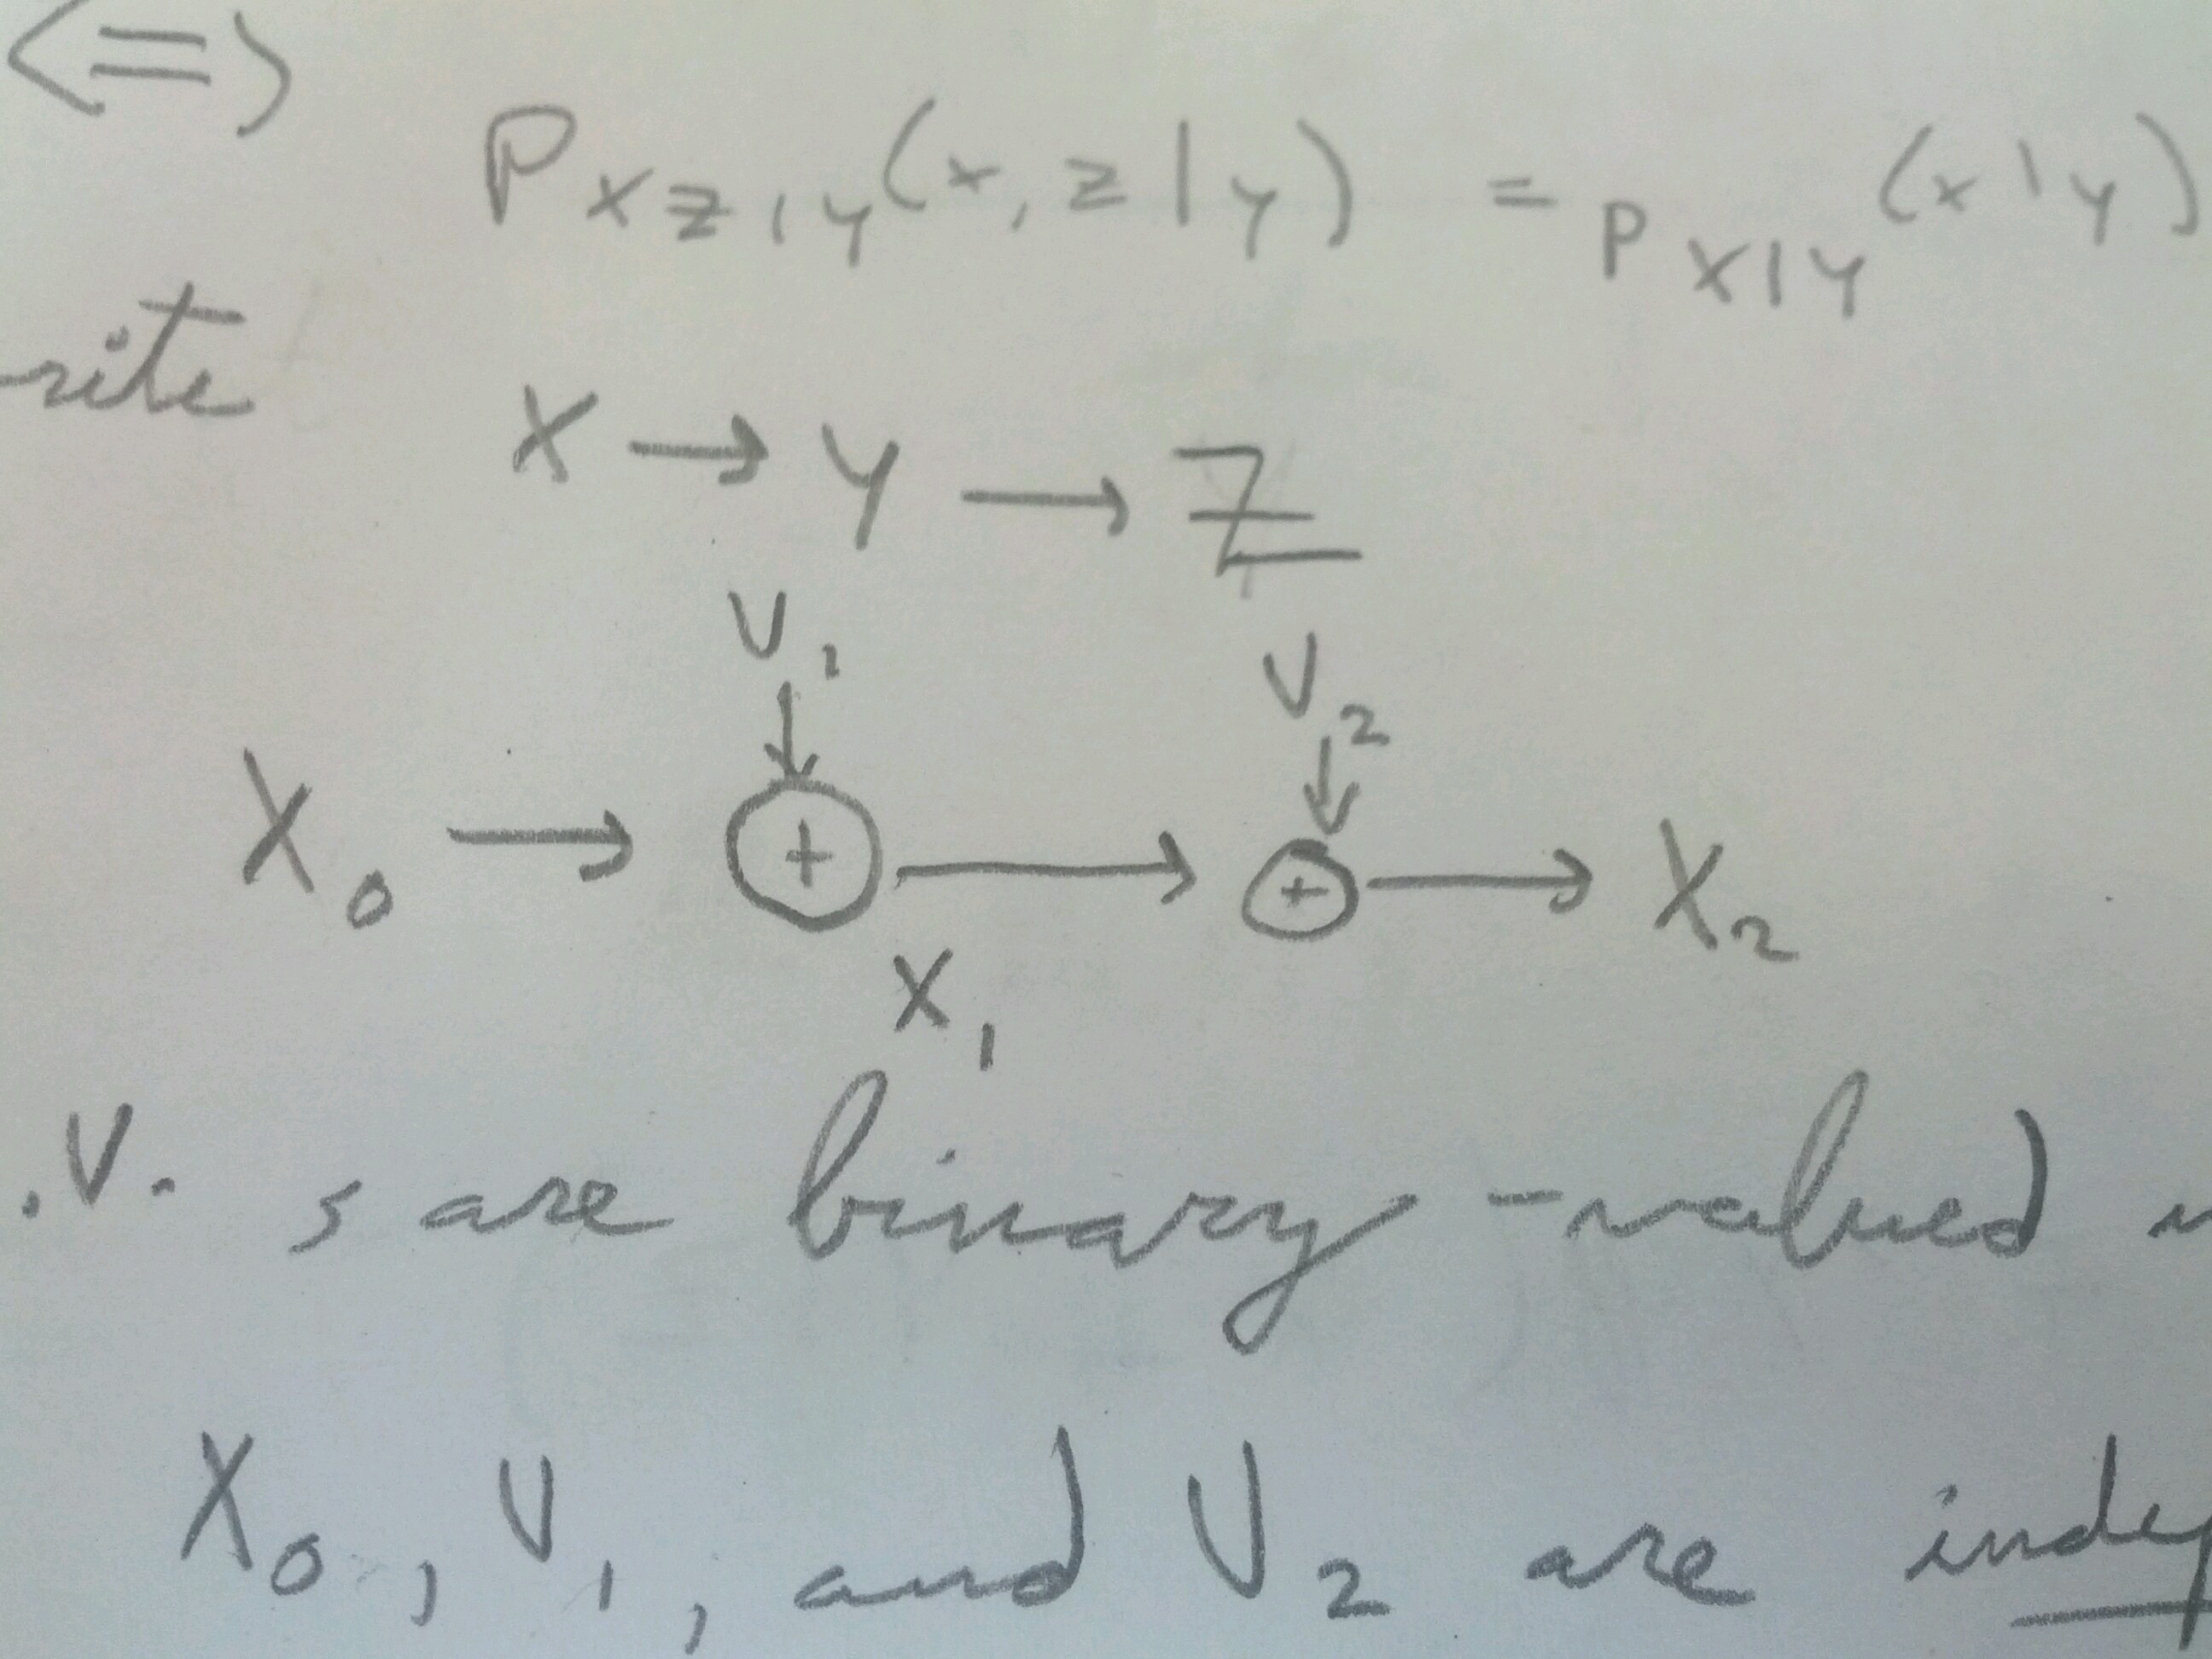 <=>
P_{XZ|Y}(x, z | y) = P_{X|Y}(x | y)
rite
X → Y → Z
V_1 V_2
X_0 → ⊕ → ⊕ → X_2
X_1
.V. s are binary-valued
X_0, V_1, and V_2 are indep